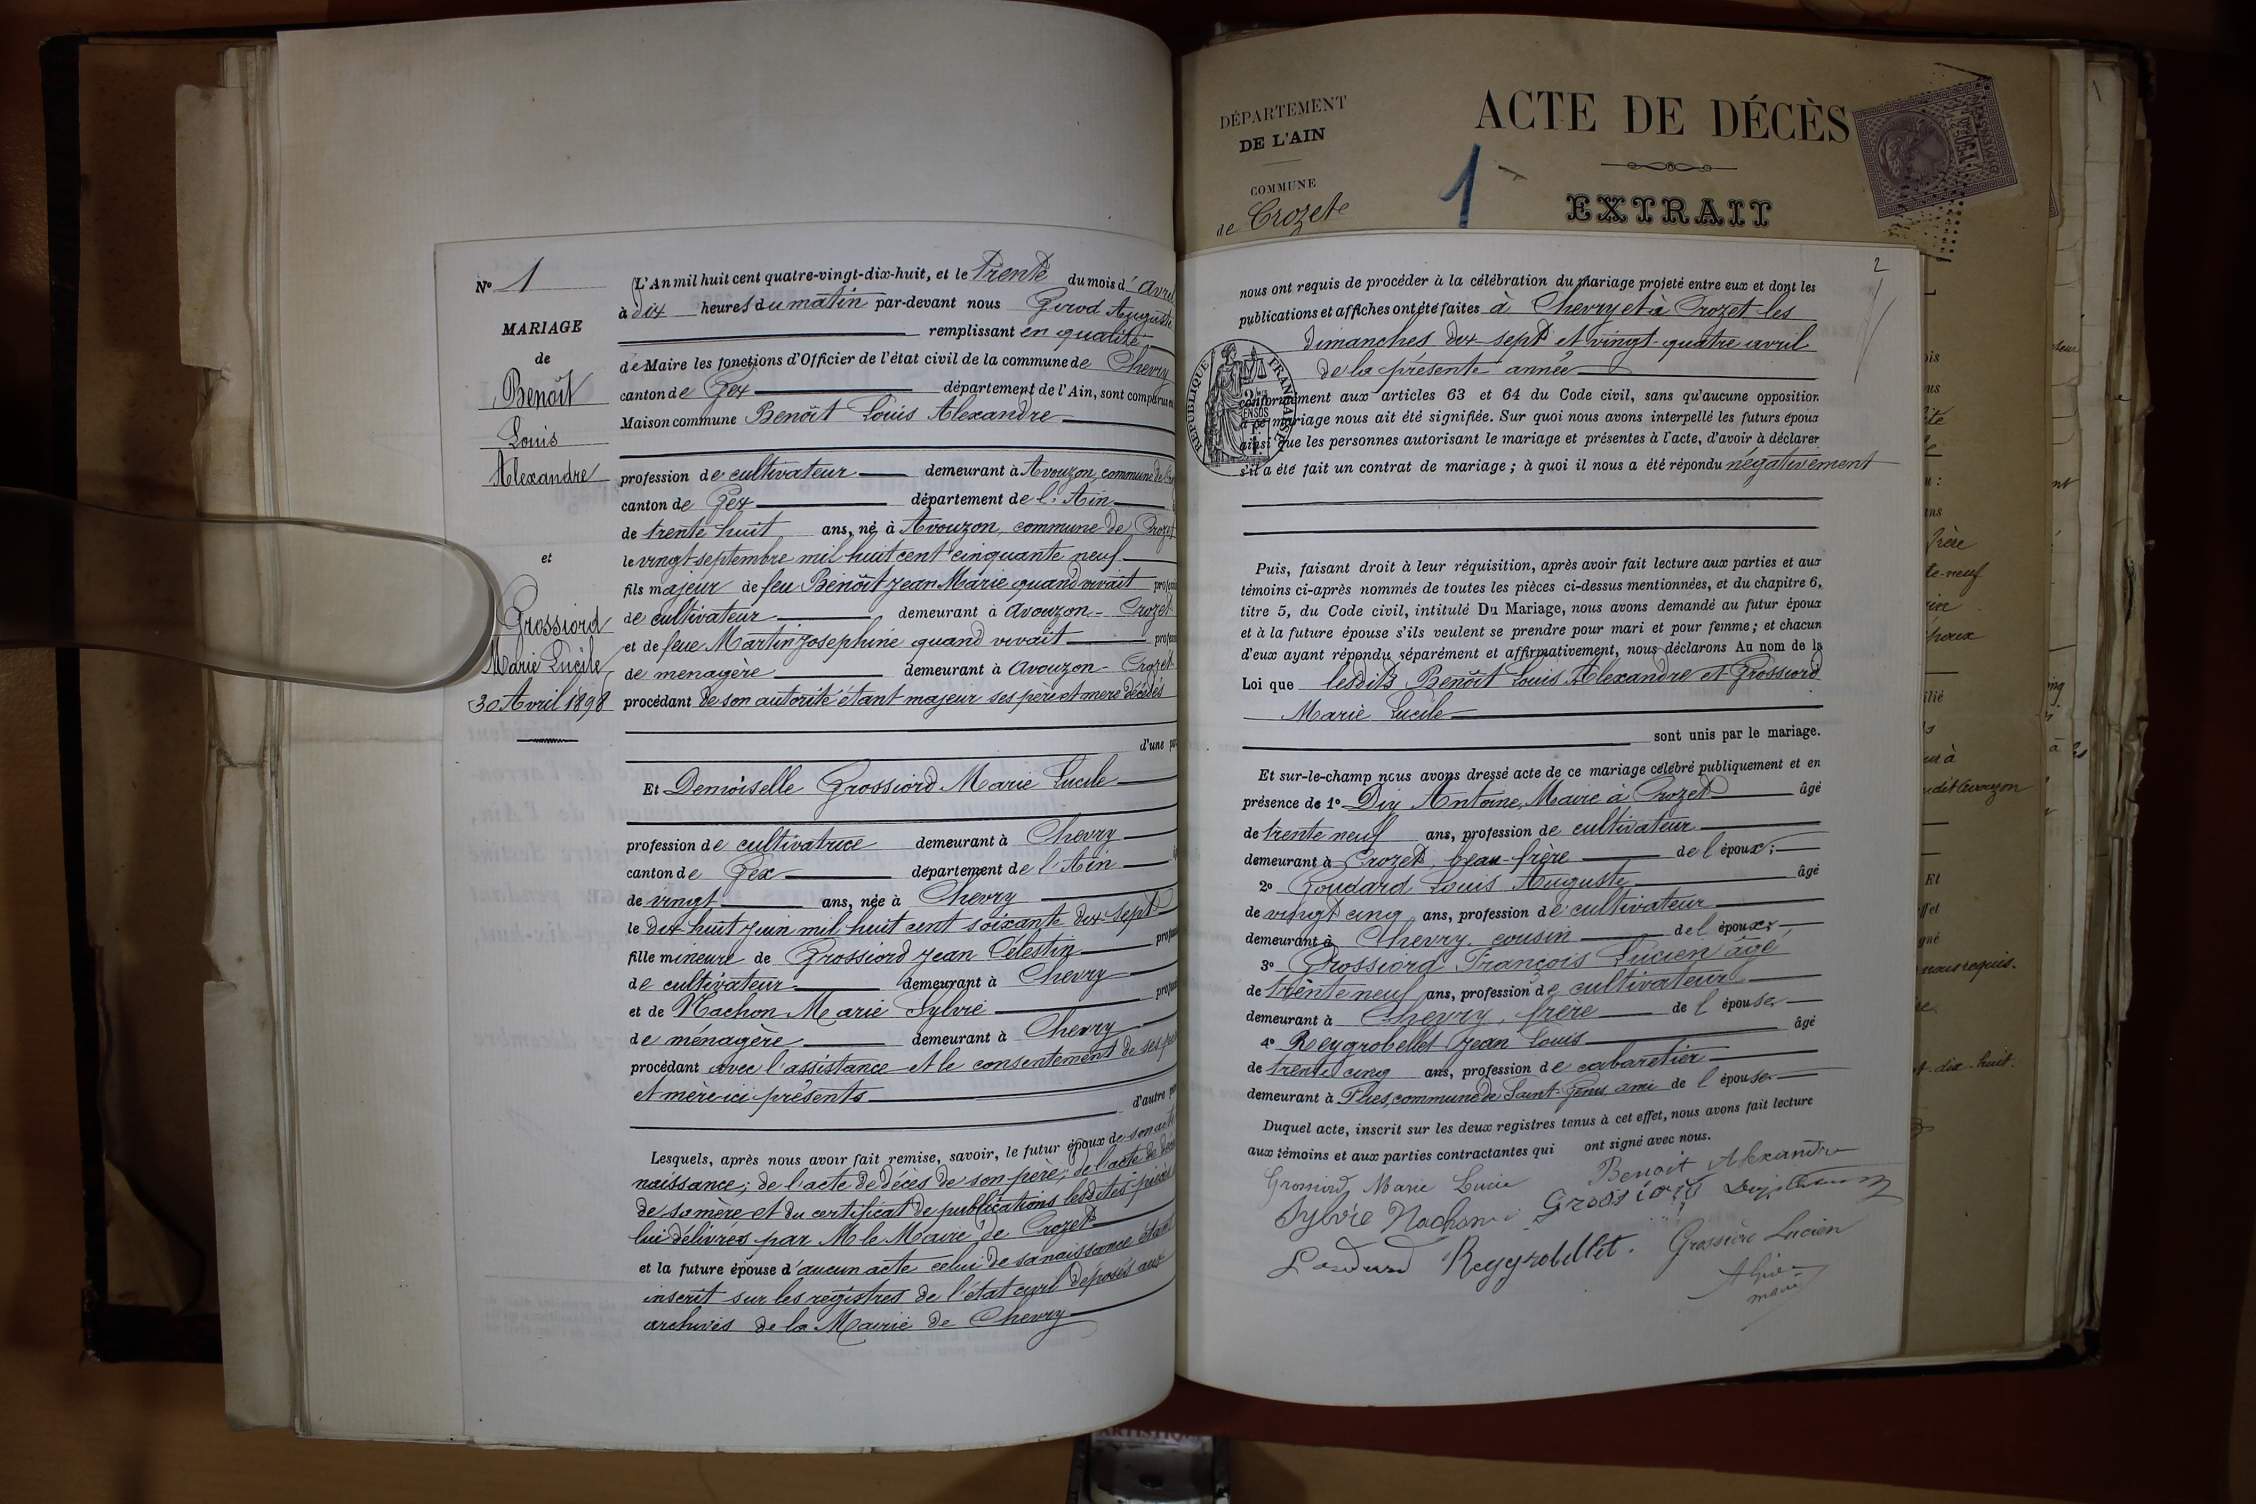 N° 1
MARIAGE
de
Benoît
Louis
Alexandre
et
Grossiord
Marie Lucile
30 Avril 1898
L'An mil huit cent quatre-vingt-dix-huit, et le Trente du mois d'avril
à dix heures du matin par-devant nous Girod Auguste
remplissant en qualité
de Maire les fonctions d'Officier de l'état civil de la commune de Chevry
canton de Gex département de l'Ain, sont comparus en
Maison commune Benoît Louis Alexandre
profession de cultivateur demeurant à Avouzon, commune de
canton de Gex département de l'Ain
de trente huit ans, né à Avouzon, commune de Crozet
le vingt septembre mil huit cent cinquante-neuf
fils majeur de feu Benoît Jean Marie quand vivait
de cultivateur demeurant à Avouzon - Crozet
et de feue Martin Josephine quand vivait
de menagère demeurant à Avouzon - Crozet
procédant de son autorité étant majeur ses père et mère décédés
d'une
Et Demoiselle Grossiord Marie Lucile
profession de cultivatrice demeurant à Chevry
canton de Gex département de l'Ain
de vingt ans, née à Chevry
le dix huit juin mil huit cent soixante dix sept
fille mineure de Grossiord Jean Célestin
de cultivateur demeurant à Chevry
et de Nachon Marie Sylvie
de ménagère demeurant à Chevry
procédant avec l'assistance et le consentement de ses
et mère ici présents
d'autre
Lesquels, après nous avoir fait remise, savoir, le futur époux de son acte
naissance; de l'acte de décès de son père; de l'acte de
de sa mère et du certificat de publications lesdites pièces
lui délivrées par M le Maire de Crozet
et la future épouse d'aucun acte celui de sa naissance étant
inscrit sur les registres de l'état civil déposés aux
archives de la Mairie de Chevry
DÉPARTEMENT
DE L'AIN
COMMUNE
de Crozet
ACTE DE DÉCÈS
1
EXTRAIT
2
nous ont requis de procéder à la célébration du mariage projeté entre eux et dont les
publications et affiches ont été faites à Chevry et à Crozet les
dimanches dix-sept et vingt-quatre avril
de la présente année
RÉPUBLIQUE FRANÇAISE
conformément aux articles 63 et 64 du Code civil, sans qu'aucune opposition
à ce mariage nous ait été signifiée. Sur quoi nous avons interpellé les futurs époux
ainsi que les personnes autorisant le mariage et présentes à l'acte, d'avoir à déclarer
s'il a été fait un contrat de mariage; à quoi il nous a été répondu négativement
Puis, faisant droit à leur réquisition, après avoir fait lecture aux parties et aux
témoins ci-après nommés de toutes les pièces ci-dessus mentionnées, et du chapitre 6,
titre 5, du Code civil, intitulé Du Mariage, nous avons demandé au futur époux
et à la future épouse s'ils veulent se prendre pour mari et pour femme; et chacun
d'eux ayant répondu séparément et affirmativement, nous déclarons Au nom de la
Loi que lesdits Benoît Louis Alexandre et Grossiord
Marie Lucile
sont unis par le mariage.
Et sur-le-champ nous avons dressé acte de ce mariage célébré publiquement et en
présence de 1° Diy Antoine, Maire à Crozet âgé
de trente neuf ans, profession de cultivateur
demeurant à Crozet, beau-frère de l'époux;
2° Goudard Louis Auguste âgé
de vingt cinq ans, profession de cultivateur
demeurant à Chevry cousin de l'époux
3° Grossiord François Lucien âgé
de trente neuf ans, profession de cultivateur
demeurant à Chevry, frère de l'épouse
4° Reygrobellet Jean Louis âgé
de trente cinq ans, profession de cabaretier
demeurant à Flies, commune de Saint-Genis ami de l'épouse
Duquel acte, inscrit sur les deux registres tenus à cet effet, nous avons fait lecture
aux témoins et aux parties contractantes qui ont signé avec nous.
Grossiord Marie Benoit Alexandre
Sylvie Nachon Grossiord
Reygrobellet Lucien
maire